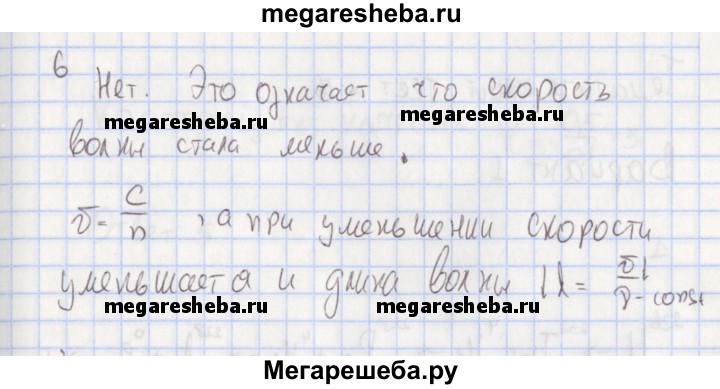 megaresheba.ru
6
Нет. Это означает что скорость
megaresheba.ru megaresheba.ru
волны стала меньше.
v = c/n , а при уменьшении скорости
уменьшается и длина волны ↓λ = v↓/ν - const
megaresheba.ru megaresheba.ru
Мегарешеба.ру